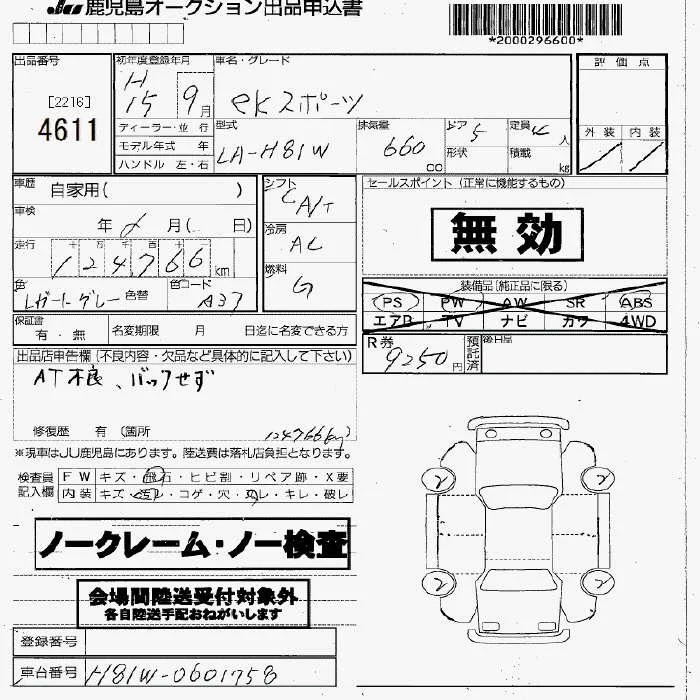 JU 鹿児島オークション出品申込書
*2000296600*
出品番号
[2216]
4611
初年度登録年月
H15 9月
ディーラー・並 行
モデル年式 年
ハンドル 左・右
車名・グレード
eKスポーツ
型式
LA-H81W
排気量
660 cc
ドア 5
形状
定員 4 人
積載 kg
評 価 点
外 装 内 装
車歴 自家用( )
車検 年 月( 日)
走行 十 万 千 百 十 一
124,766 km
色 Lガートグレー 色替
色コード A37
シフト
CA/T
冷房
AC
燃料
G
セールスポイント (正常に機能するもの)
無効
装備品 (純正品に限る)
PS PW AW SR ABS
エアB TV ナビ カワ 4WD
保証書
有・無
名変期限 月 日迄に名変できる方
R券 9250円
預託済
後日品
出品店申告欄 (不良内容・欠品など具体的に記入して下さい)
AT不良、バックせず
修復歴 有 (箇所
124766km)
※現車はJU鹿児島にあります。陸送費は落札店負担となります。
検査員記入欄
FW キズ・飛石・ヒビ割・リペア跡・X要
内装 キズ・汚レ・コゲ・穴・スレ・キレ・破レ
ノークレーム・ノー検査
会場間陸送受付対象外
各自陸送手配おねがいします
登録番号
車台番号 H81W-0601758
2 2
2 2